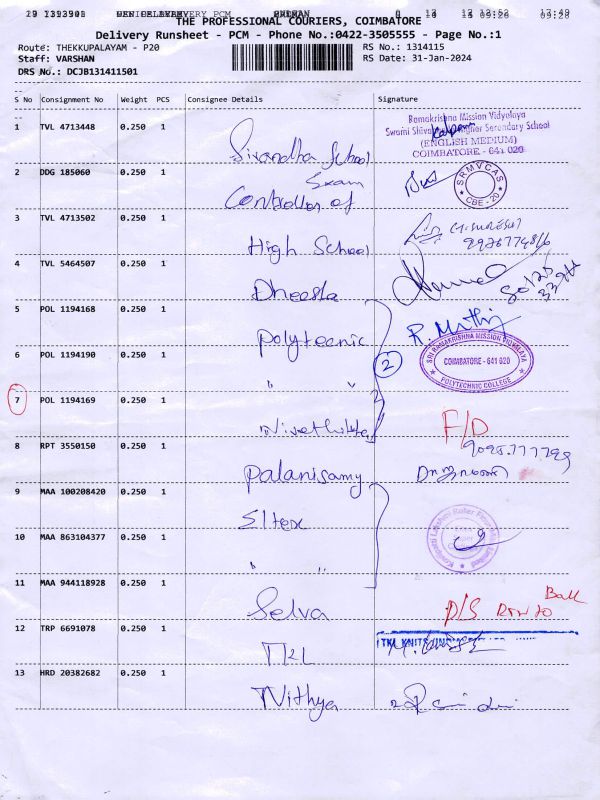 THE PROFESSIONAL COURIERS, COIMBATORE
Delivery Runsheet - PCM - Phone No.:0422-3505555 - Page No.:1
Route: THEKKUPALAYAM - P20
RS No.: 1314115
Staff: VARSHAN
RS Date: 31-Jan-2024
DRS No.: DCJB131411501
S No Consignment No Weight PCS Consignee Details Signature
1 TVL 4713448 0.250 1 School
Ramakrishna Mission Vidyalaya
Higher Secondary School
(ENGLISH MEDIUM)
COIMBATORE - 641 020
2 DDG 185060 0.250 1 Exam
Controller of
SRMVCAS
CBE - 20
3 TVL 4713502 0.250 1
High School
4 TVL 5464507 0.250 1
Dheesha
5 POL 1194168 0.250 1
Polyteenic
R. Mathi
6 POL 1194190 0.250 1
" "
2
SRI RAMAKRISHNA MISSION VIDYALAYA
COIMBATORE - 641 020
POLYTECHNIC COLLEGE
7 POL 1194169 0.250 1
Nivethitha
F/D
8 RPT 3550150 0.250 1
Palanisamy
9 MAA 100208420 0.250 1
Eltex
10 MAA 863104377 0.250 1
" "
11 MAA 944118928 0.250 1
Selva
D/S
12 TRP 6691078 0.250 1
13 HRD 20382682 0.250 1
Nithya